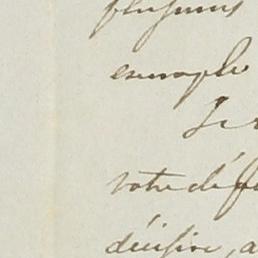 plusieurs
exemple
Je
votre déf
décisive, a